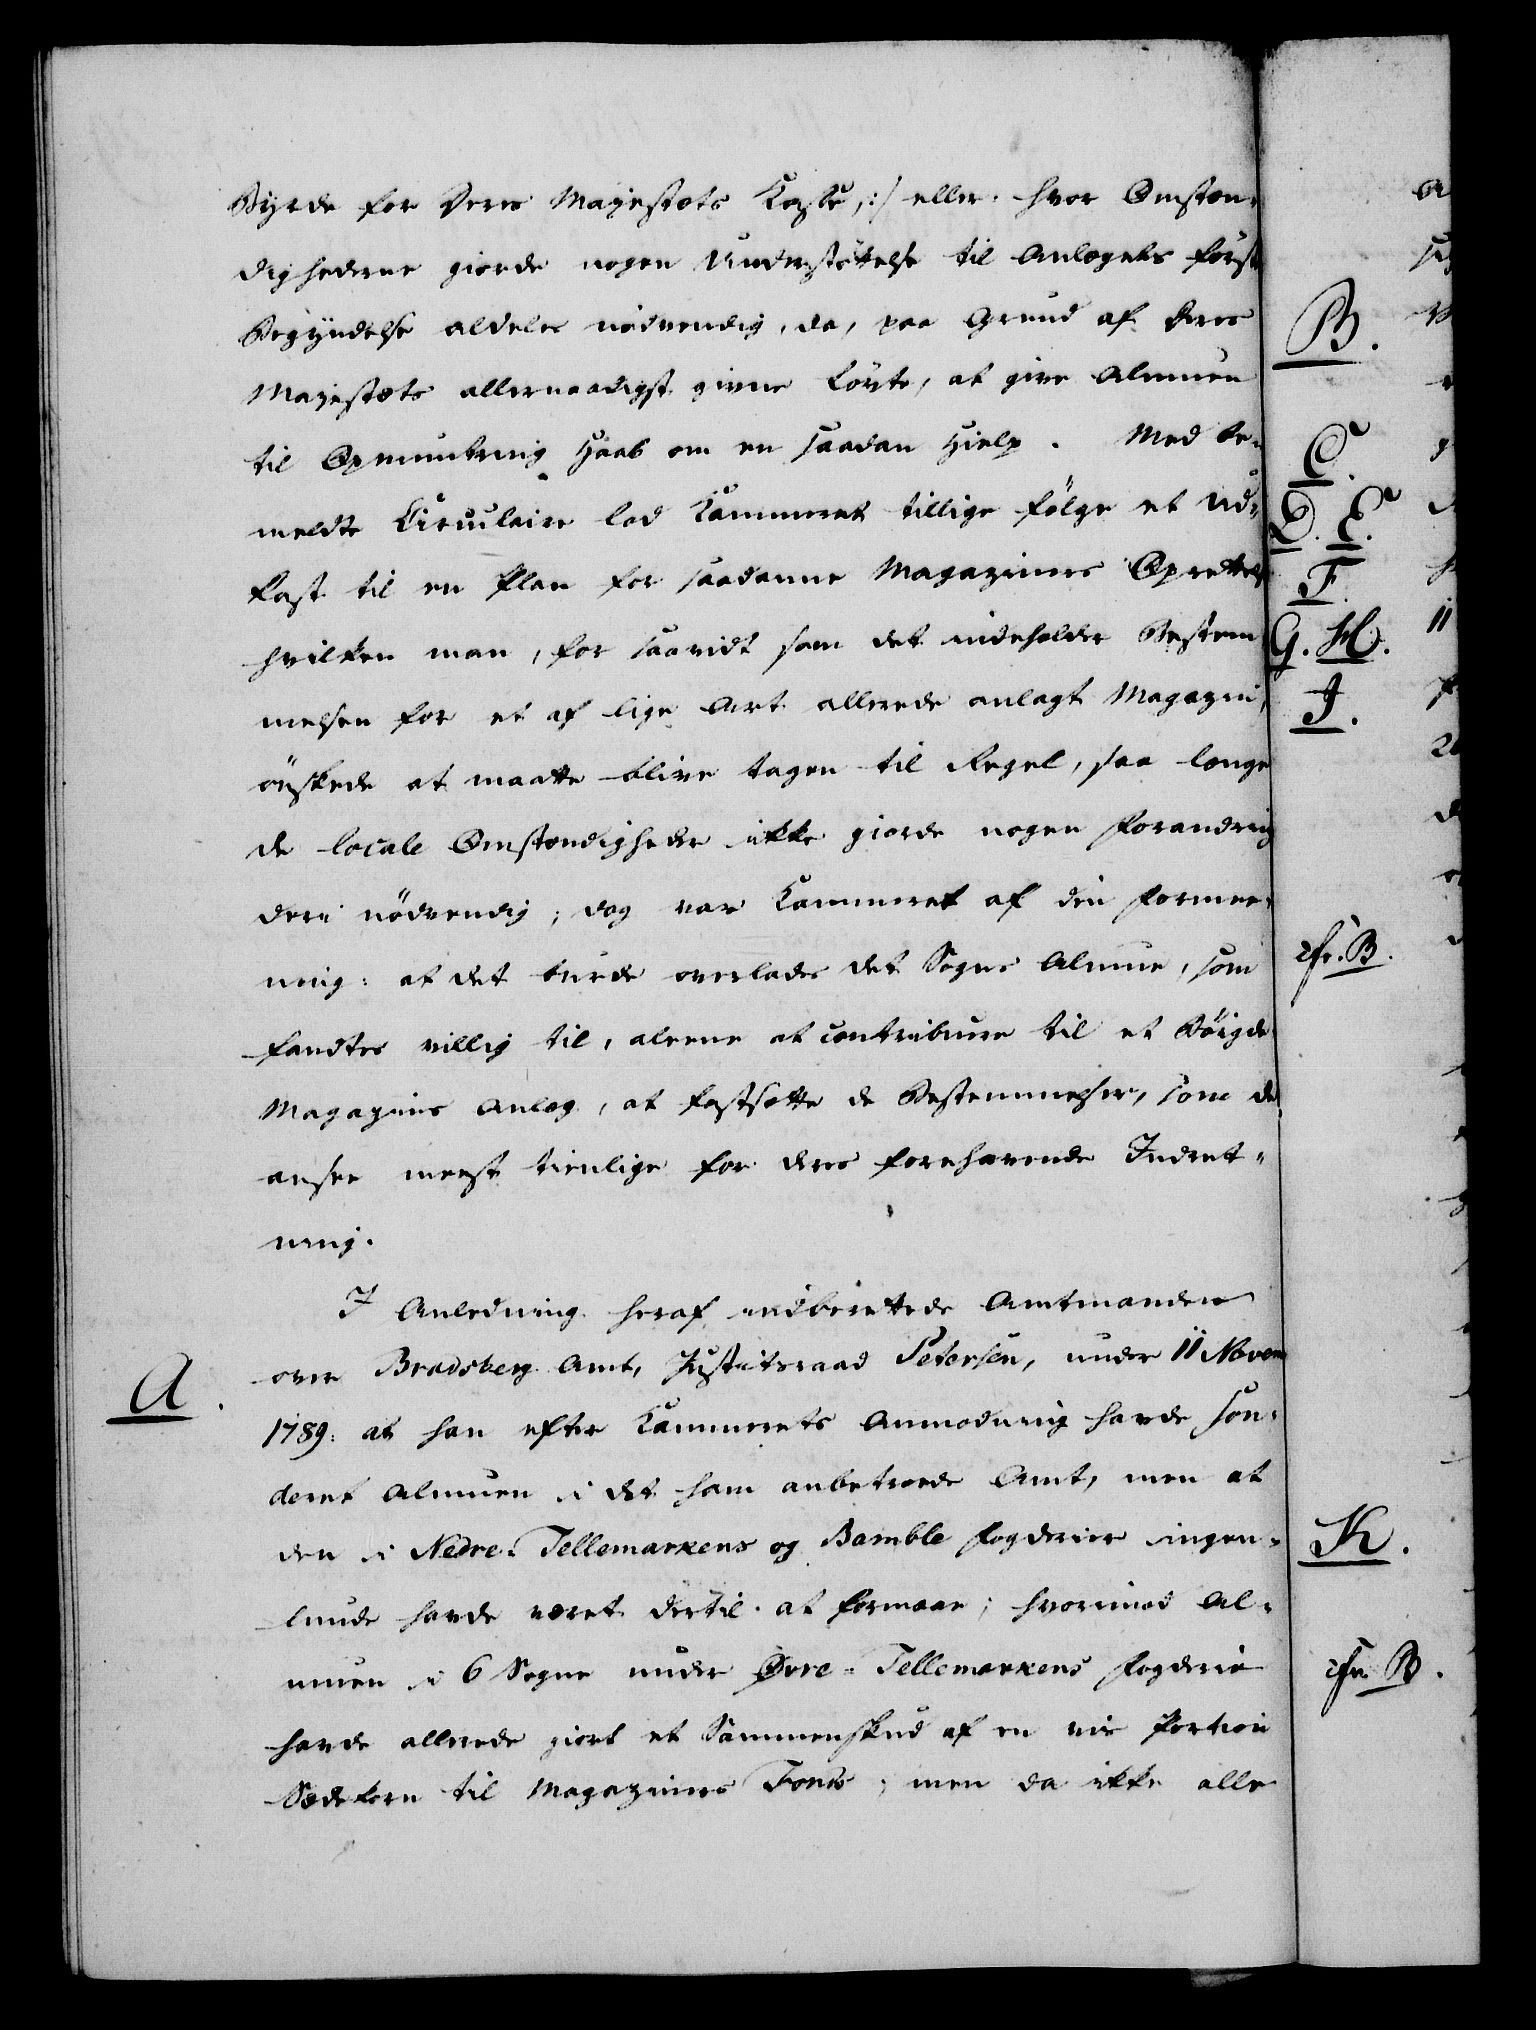 Byrde for Deres Majestæts Kasse,:/ eller hvor Omstæn-
dighederne giorde nogen Understøttelse til Anlægets første
Begyndelse aldeles nødvendig, da, paa Grund af Deres
Majestæts allernaadigst givne Løvte, at give Almuen
til Opmuntring Haab om en saadan Hielp. Med be-
meldte Circulaire lod Kammeret tillige følge et Ud-
kast til en Plan for saadanne Magaziners Oprettelse
hvilken man, for saavidt som det indeholder Bestem-
melsen for et af lige Art allerede anlagt Magazin,
ønskede at maatte blive tagen til Regel, saa længe
de locale Omstændigheder ikke giorde nogen Forandring
deri nødvendig; dog var Kammeret af den Formee-
ning: at det burde overlades det Sogns Almue, som
fandtes villig til, aleene at contribuere til et Bøigde
Magazins Anlæg, at fastsætte de Bestemmelser, som de
ansee meest tienlige for deres forehavende Indret-
ning.
I Anledning heraf indberettede Amtmanden
over Bradsberg Amt, Justitsraad Petersen, under 11 Novem
A.
1789: at han efter Kammerets Anmodning havde son-
deret Almuen i det ham anbetroede Amt, men at
den i Nedre-Tellemarkens og Bamble Fogderier ingen-
lunde havde været dertil at formaae; hvorimod Al-
muen i 6 Sogne under Øvre-Tellemarkens Fogderie
havde allerede giort et Sammenskud af en vis Portion
Sædekorn til Magaziners Fonds; men da ikke alle
B.
C.
D. E.
F
G. H.
J.
cfr. B.
K.
cfr. B.